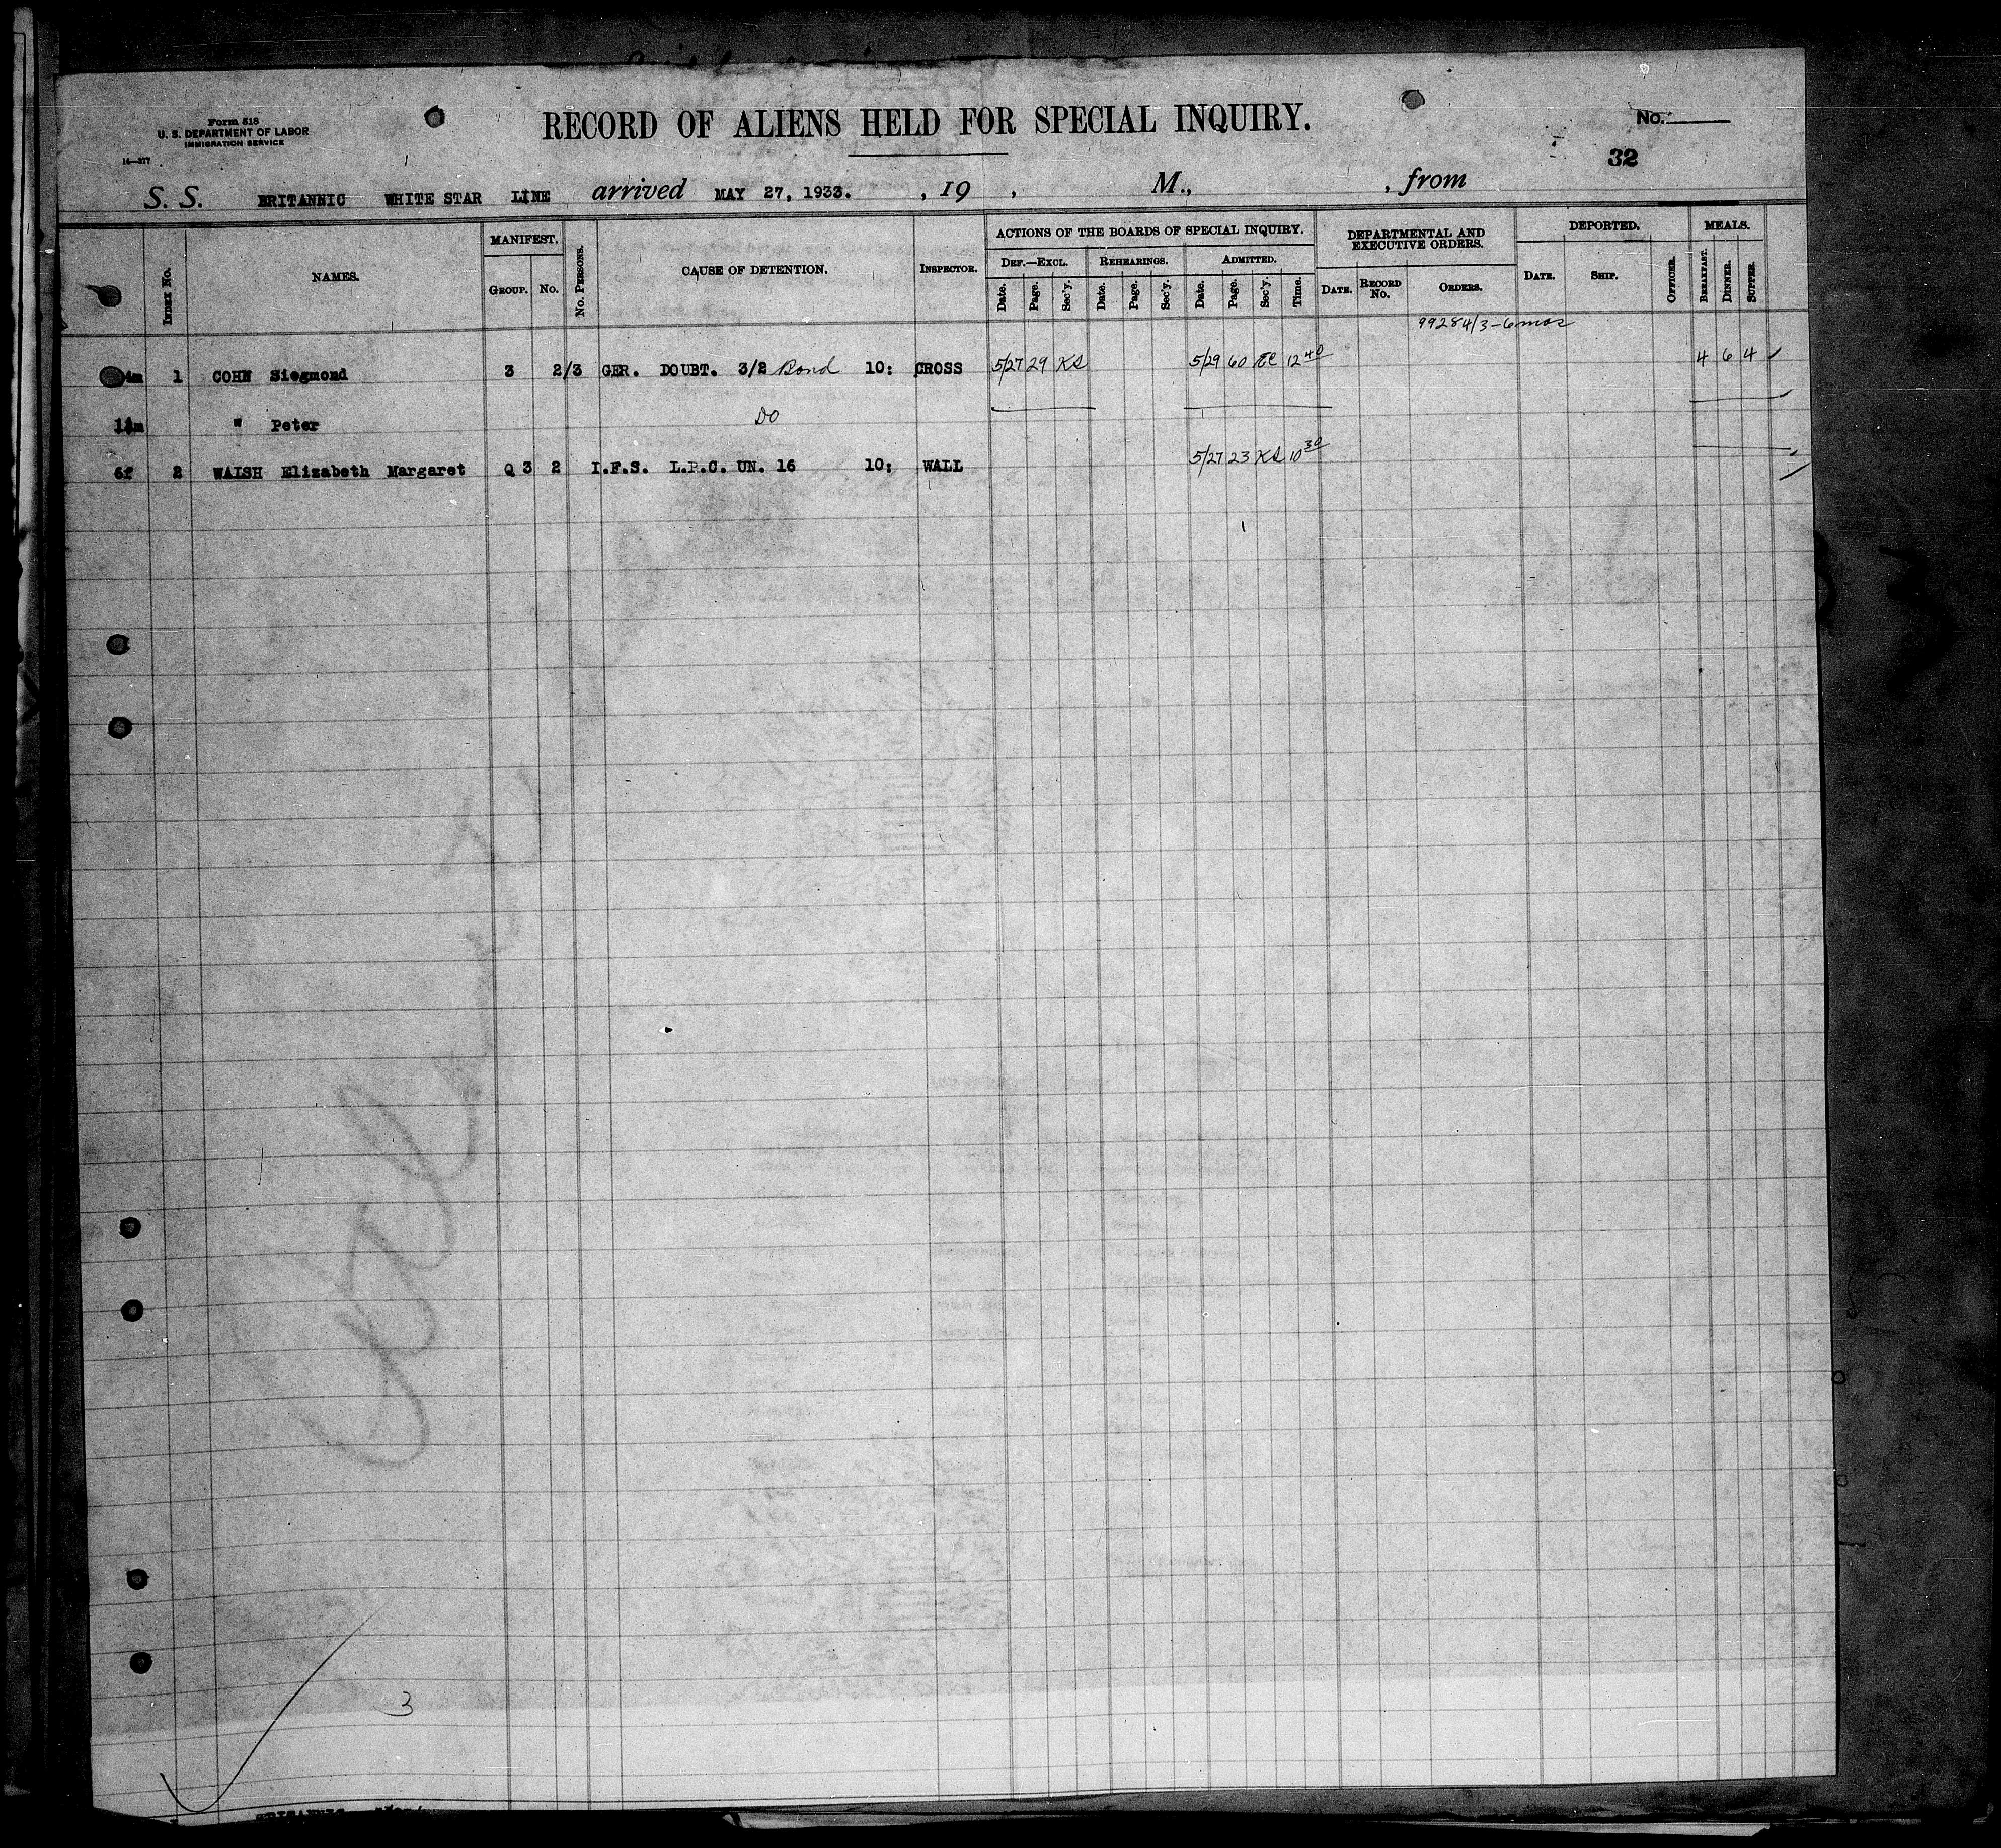 Form 518
U. S. DEPARTMENT OF LABOR
IMMIGRATION SERVICE
14—377
RECORD OF ALIENS HELD FOR SPECIAL INQUIRY.
No.
32
S. S. BRITANNIC WHITE STAR LINE arrived MAY 27, 1933. , 19 , M., , from
INDEX No. NAMES. MANIFEST. GROUP. No. No. PERSONS. CAUSE OF DETENTION. INSPECTOR. ACTIONS OF THE BOARDS OF SPECIAL INQUIRY. DEF.—EXCL. Date. Page. Sec'y. REHEARINGS. Date. Page. Sec'y. ADMITTED. Date. Page. Sec'y. Time. DEPARTMENTAL AND EXECUTIVE ORDERS. DATE. RECORD No. ORDERS. DEPORTED. DATE. SHIP. OFFICER. MEALS. BREAKFAST. DINNER. SUPPER.
99284/3-6mos
1 COHN Siegmond 3 2/3 GER. DOUBT. 3/2 Bond 10: CROSS 5/27 29 KS 5/29 60 12 40 4 6 4 ✓
" Peter DO
6f 2 WALSH Elizabeth Margaret Q 3 2 I.F.S. L.P.C. UN. 16 10: WALL 5/27 23 KS 10 30
3